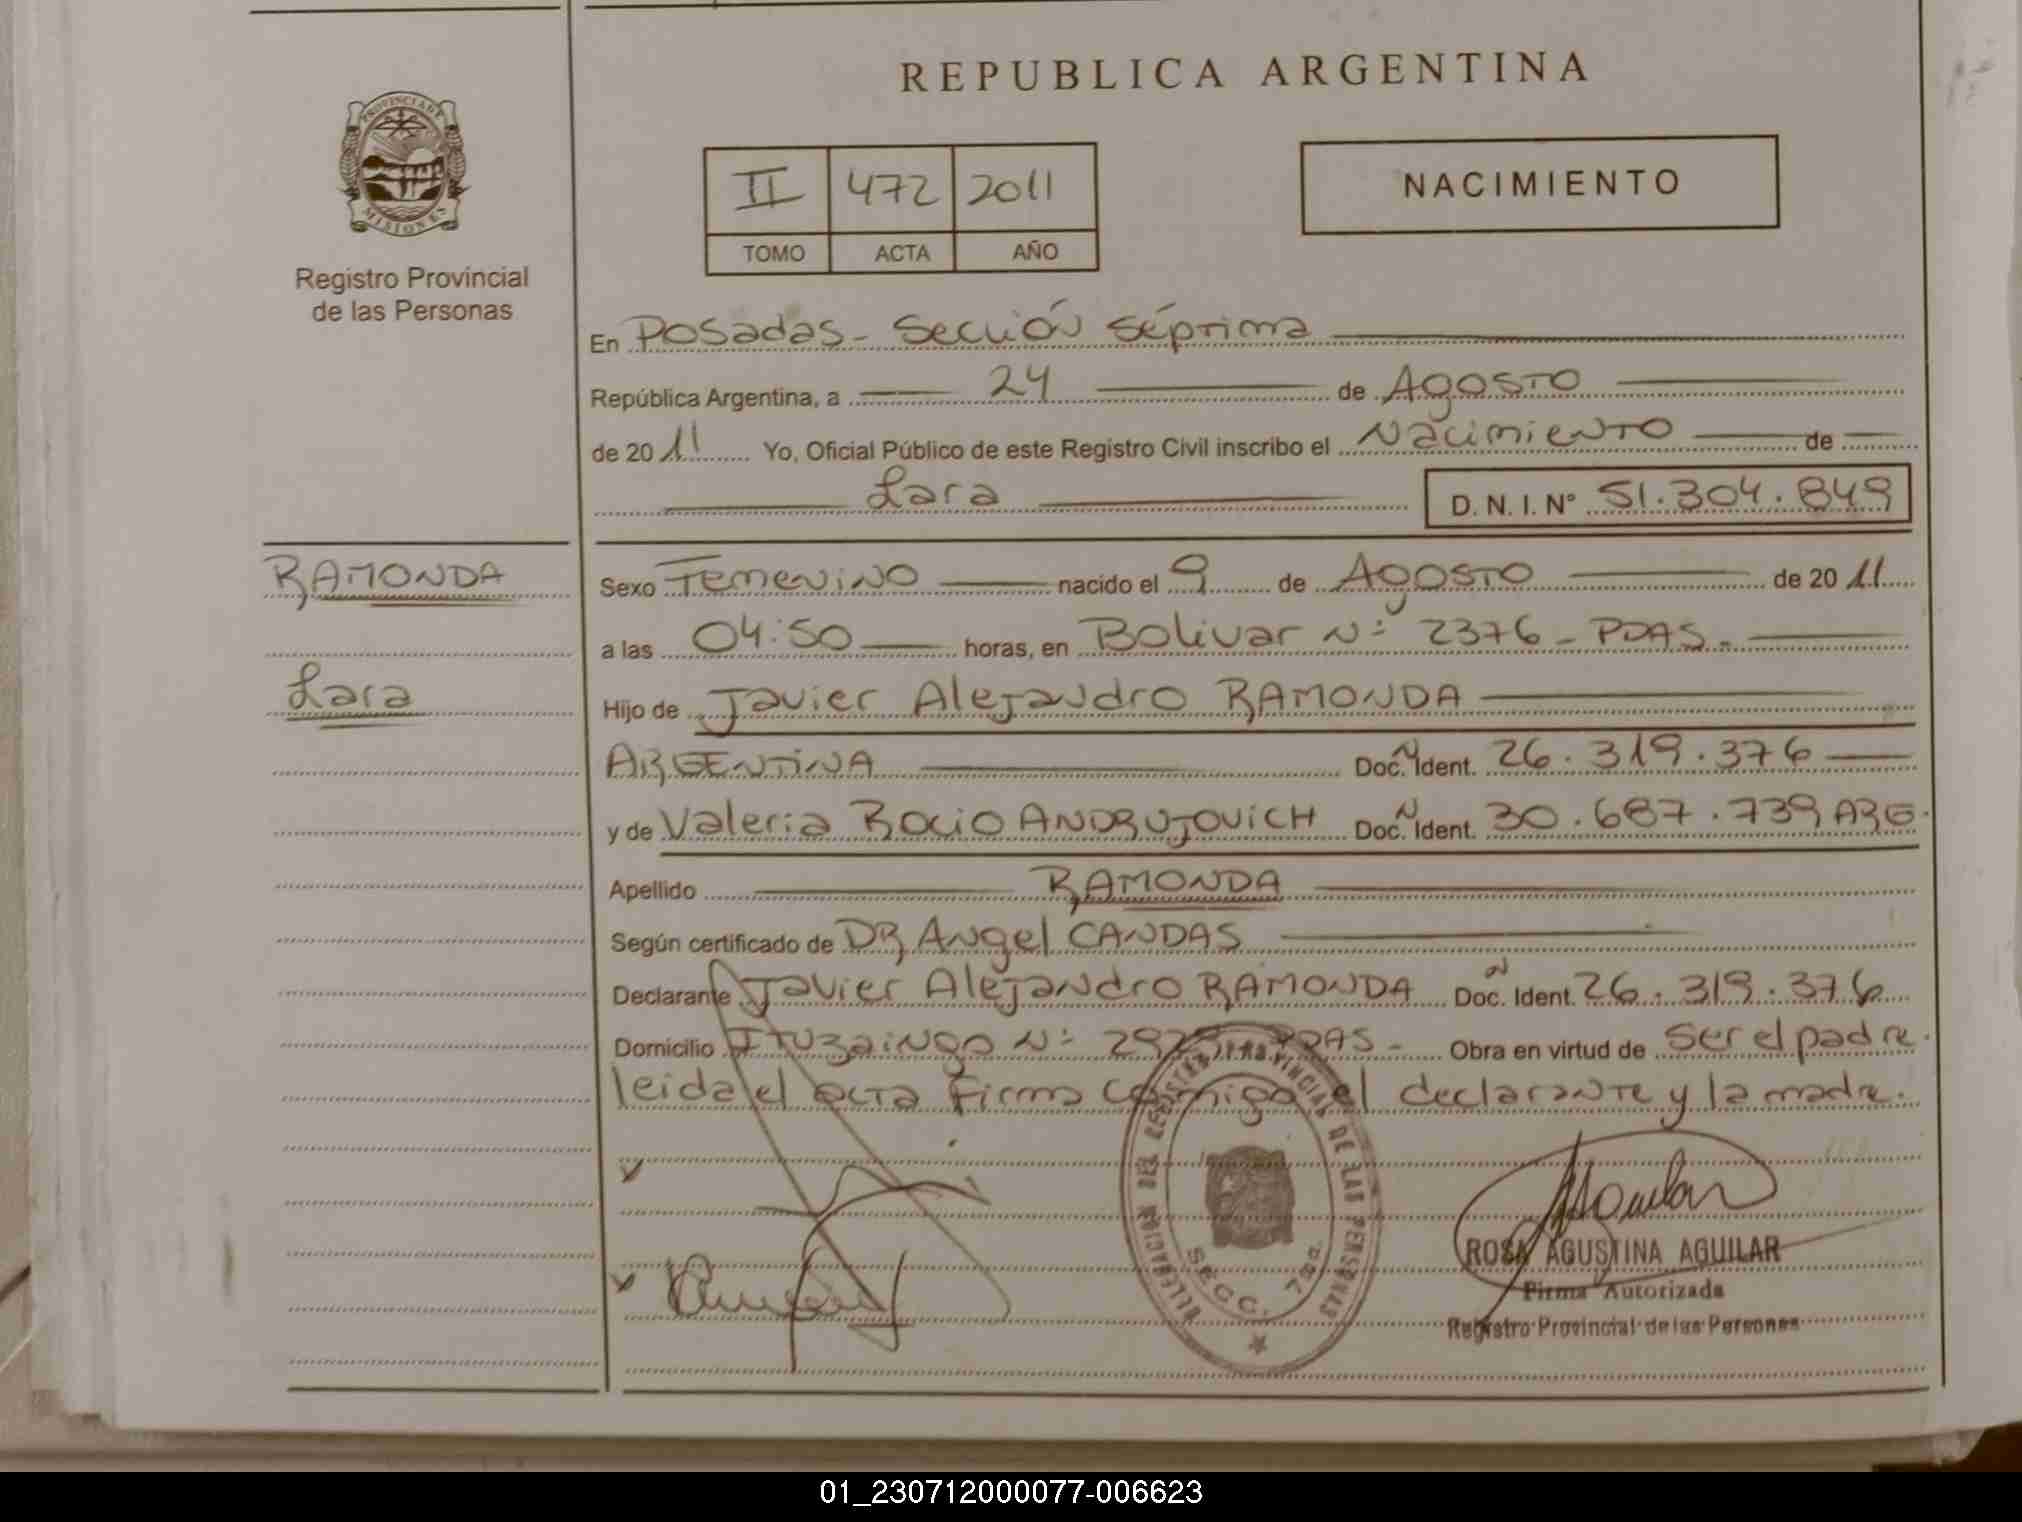 REPUBLICA ARGENTINA
PROVINCIA DE
MISIONES
Registro Provincial
de las Personas
II 472 2011
TOMO ACTA AÑO
NACIMIENTO
En Posadas - Sección Séptima
República Argentina, a 24 de Agosto
de 2011 Yo, Oficial Público de este Registro Civil inscribo el Nacimiento de
Lara D. N. I. N° 51.304.849
RAMONDA
Lara
Sexo Femenino nacido el 9 de Agosto de 2011
a las 04:50 horas, en Bolivar Nº 2376 - PDAS -
Hijo de Javier Alejandro RAMONDA
ARGENTINA Doc. Ident. 26.319.376
y de Valeria Rocio ANDRUJOVICH Doc. Ident. 30.687.739 ARG.
Apellido RAMONDA
Según certificado de DR Angel CANDAS
Declarante Javier Alejandro RAMONDA Doc. Ident. 26.319.376
Domicilio Ituzaingo Nº PDAS - Obra en virtud de ser el padre.
leida el acta firma conmigo el declarante y la madre.
DELEGACION DEL REGISTRO PROVINCIAL DE LAS PERSONAS
SECC. 7ma.
ROSA AGUSTINA AGUILAR
Firma Autorizada
Registro Provincial de las Personas
01_230712000077-006623